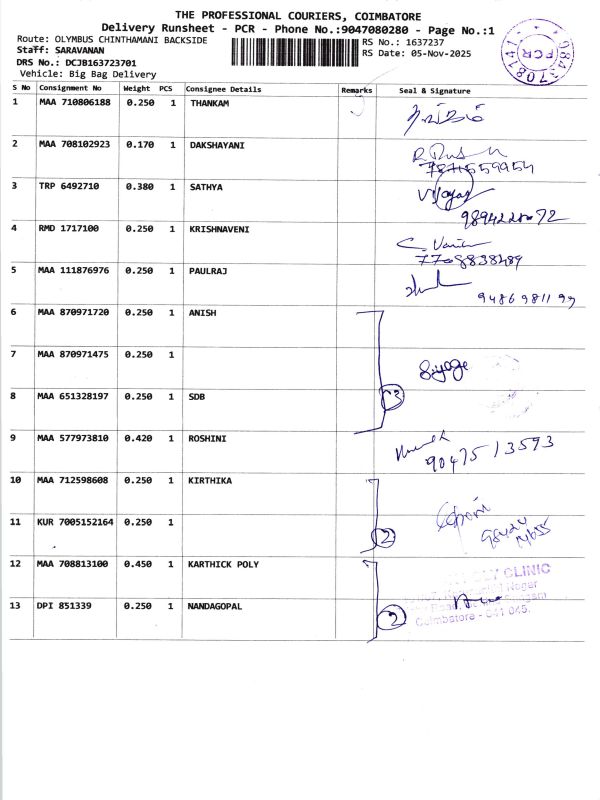 THE PROFESSIONAL COURIERS, COIMBATORE
Delivery Runsheet - PCR - Phone No.:9047080280 - Page No.:1
Route: OLYMBUS CHINTHAMANI BACKSIDE
RS No.: 1637237
Staff: SARAVANAN
RS Date: 05-Nov-2025
DRS No.: DCJB163723701
Vehicle: Big Bag Delivery
PCR
9843708141
S No Consignment No Weight PCS Consignee Details Remarks Seal & Signature
1 MAA 710806188 0.250 1 THANKAM
2 MAA 708102923 0.170 1 DAKSHAYANI
3 TRP 6492710 0.380 1 SATHYA
4 RMD 1717100 0.250 1 KRISHNAVENI
7708838489
5 MAA 111876976 0.250 1 PAULRAJ
6 MAA 870971720 0.250 1 ANISH
7 MAA 870971475 0.250 1
8 MAA 651328197 0.250 1 SDB
3
9 MAA 577973810 0.420 1 ROSHINI
9047513593
10 MAA 712598608 0.250 1 KIRTHIKA
11 KUR 7005152164 0.250 1
2
12 MAA 708813100 0.450 1 KARTHICK POLY
CLINIC
13 DPI 851339 0.250 1 NANDAGOPAL
2
Coimbatore - 641 045.